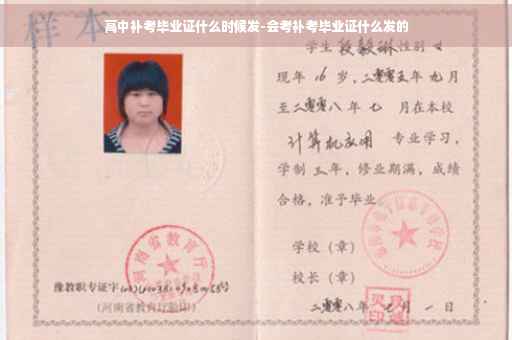 高中补考毕业证什么时候发-会考补考毕业证什么发的
样本
学生 段毅琳 性别 女
现年 16 岁,二零零五年 九 月
至二零零八年 七 月在本校
计算机应用 专业学习,
学制 三 年,修业期满,成绩
合格,准予毕业
学校(章)
校长(章)
二零零八年 七 月 一 日
河南省教育厅
豫教职专证字
(河南省教育厅验印)